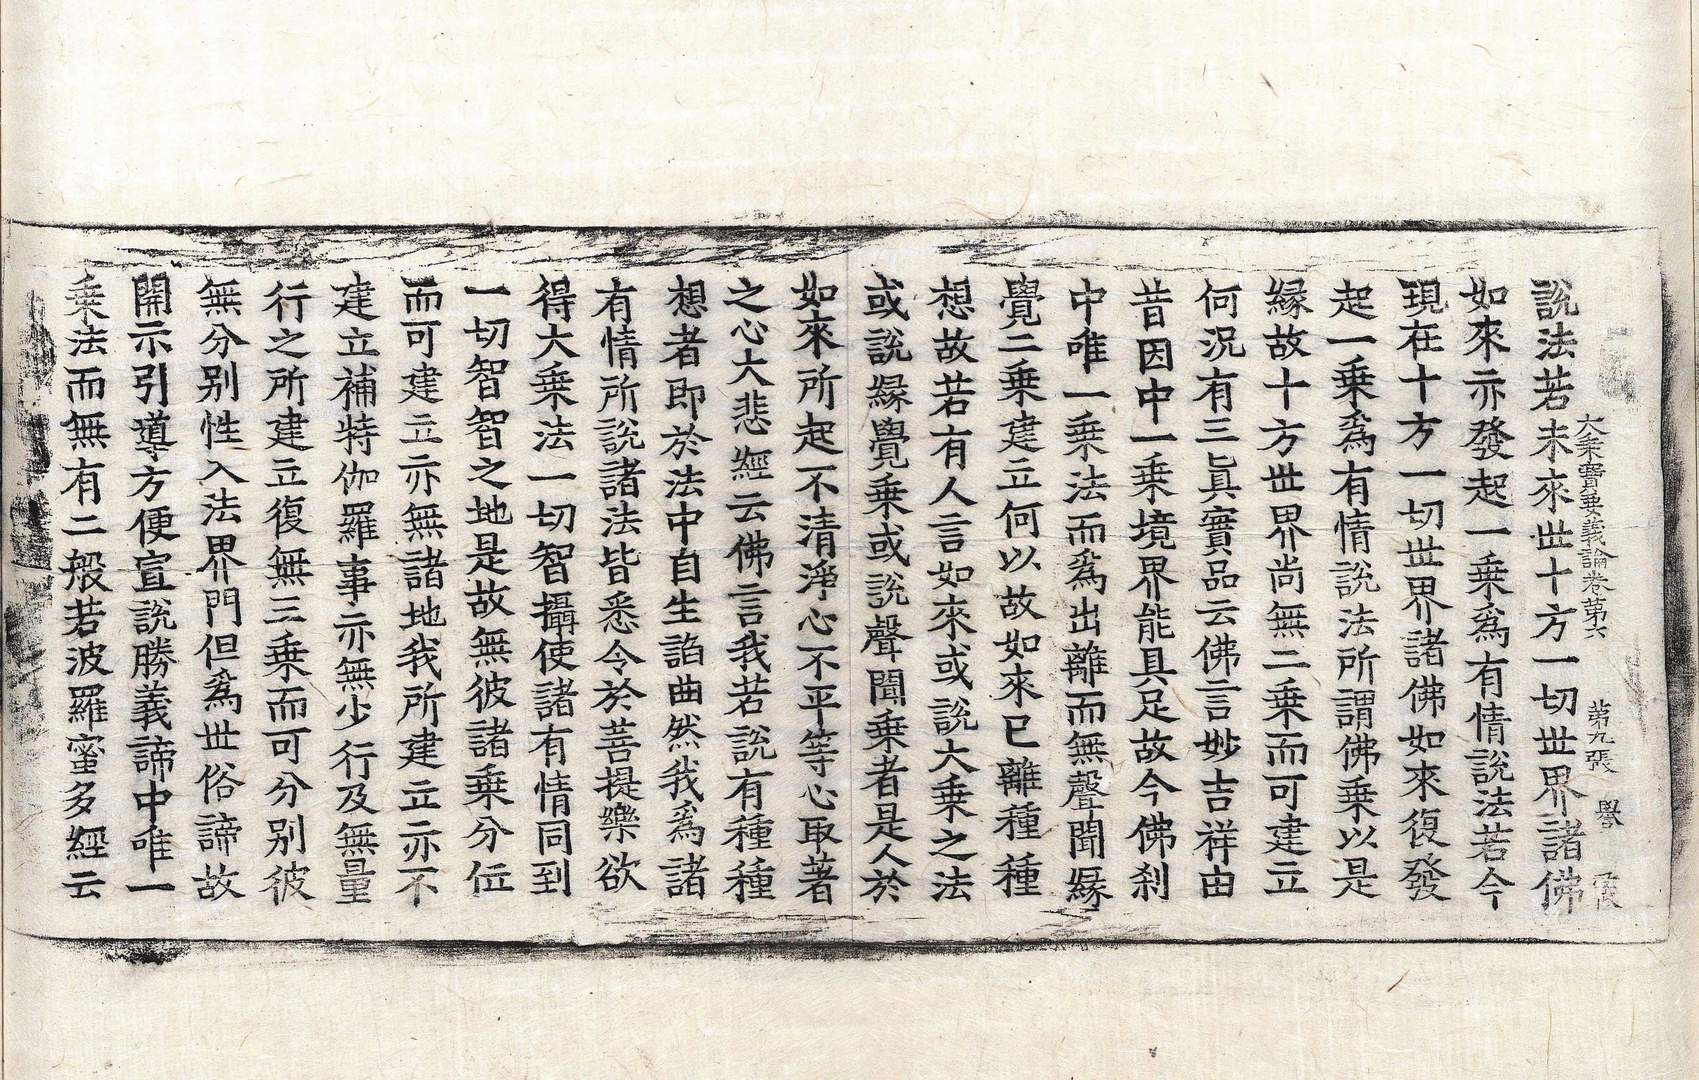 大乘寶要義論卷第六　第九張　譽
說法若未來世十方一切世界諸佛
如來亦發起一乘爲有情說法若今
現在十方一切世界諸佛如來復發
起一乘爲有情說法所謂佛乘以是
緣故十方世界尚無二乘而可建立
何況有三眞實品云佛言妙吉祥由
昔因中一乘境界能具足故今佛刹
中唯一乘法而爲出離而無聲聞緣
覺二乘建立何以故如來已離種種
想故若有人言如來或說大乘之法
或說緣覺乘或說聲聞乘者是人於
如來所起不清淨心不平等心取著
之心大悲經云佛言我若說有種種
想者即於法中自生諂曲然我爲諸
有情所說諸法皆悉令於菩提樂欲
得大乘法一切智攝使諸有情同到
一切智智之地是故無彼諸乘分位
而可建立亦無諸地我所建立亦不
建立補特伽羅事亦無少行及無量
行之所建立復無三乘而可分別彼
無分別性入法界門但爲世俗諦故
開示引導方便宣說勝義諦中唯一
乘法而無有二般若波羅蜜多經云